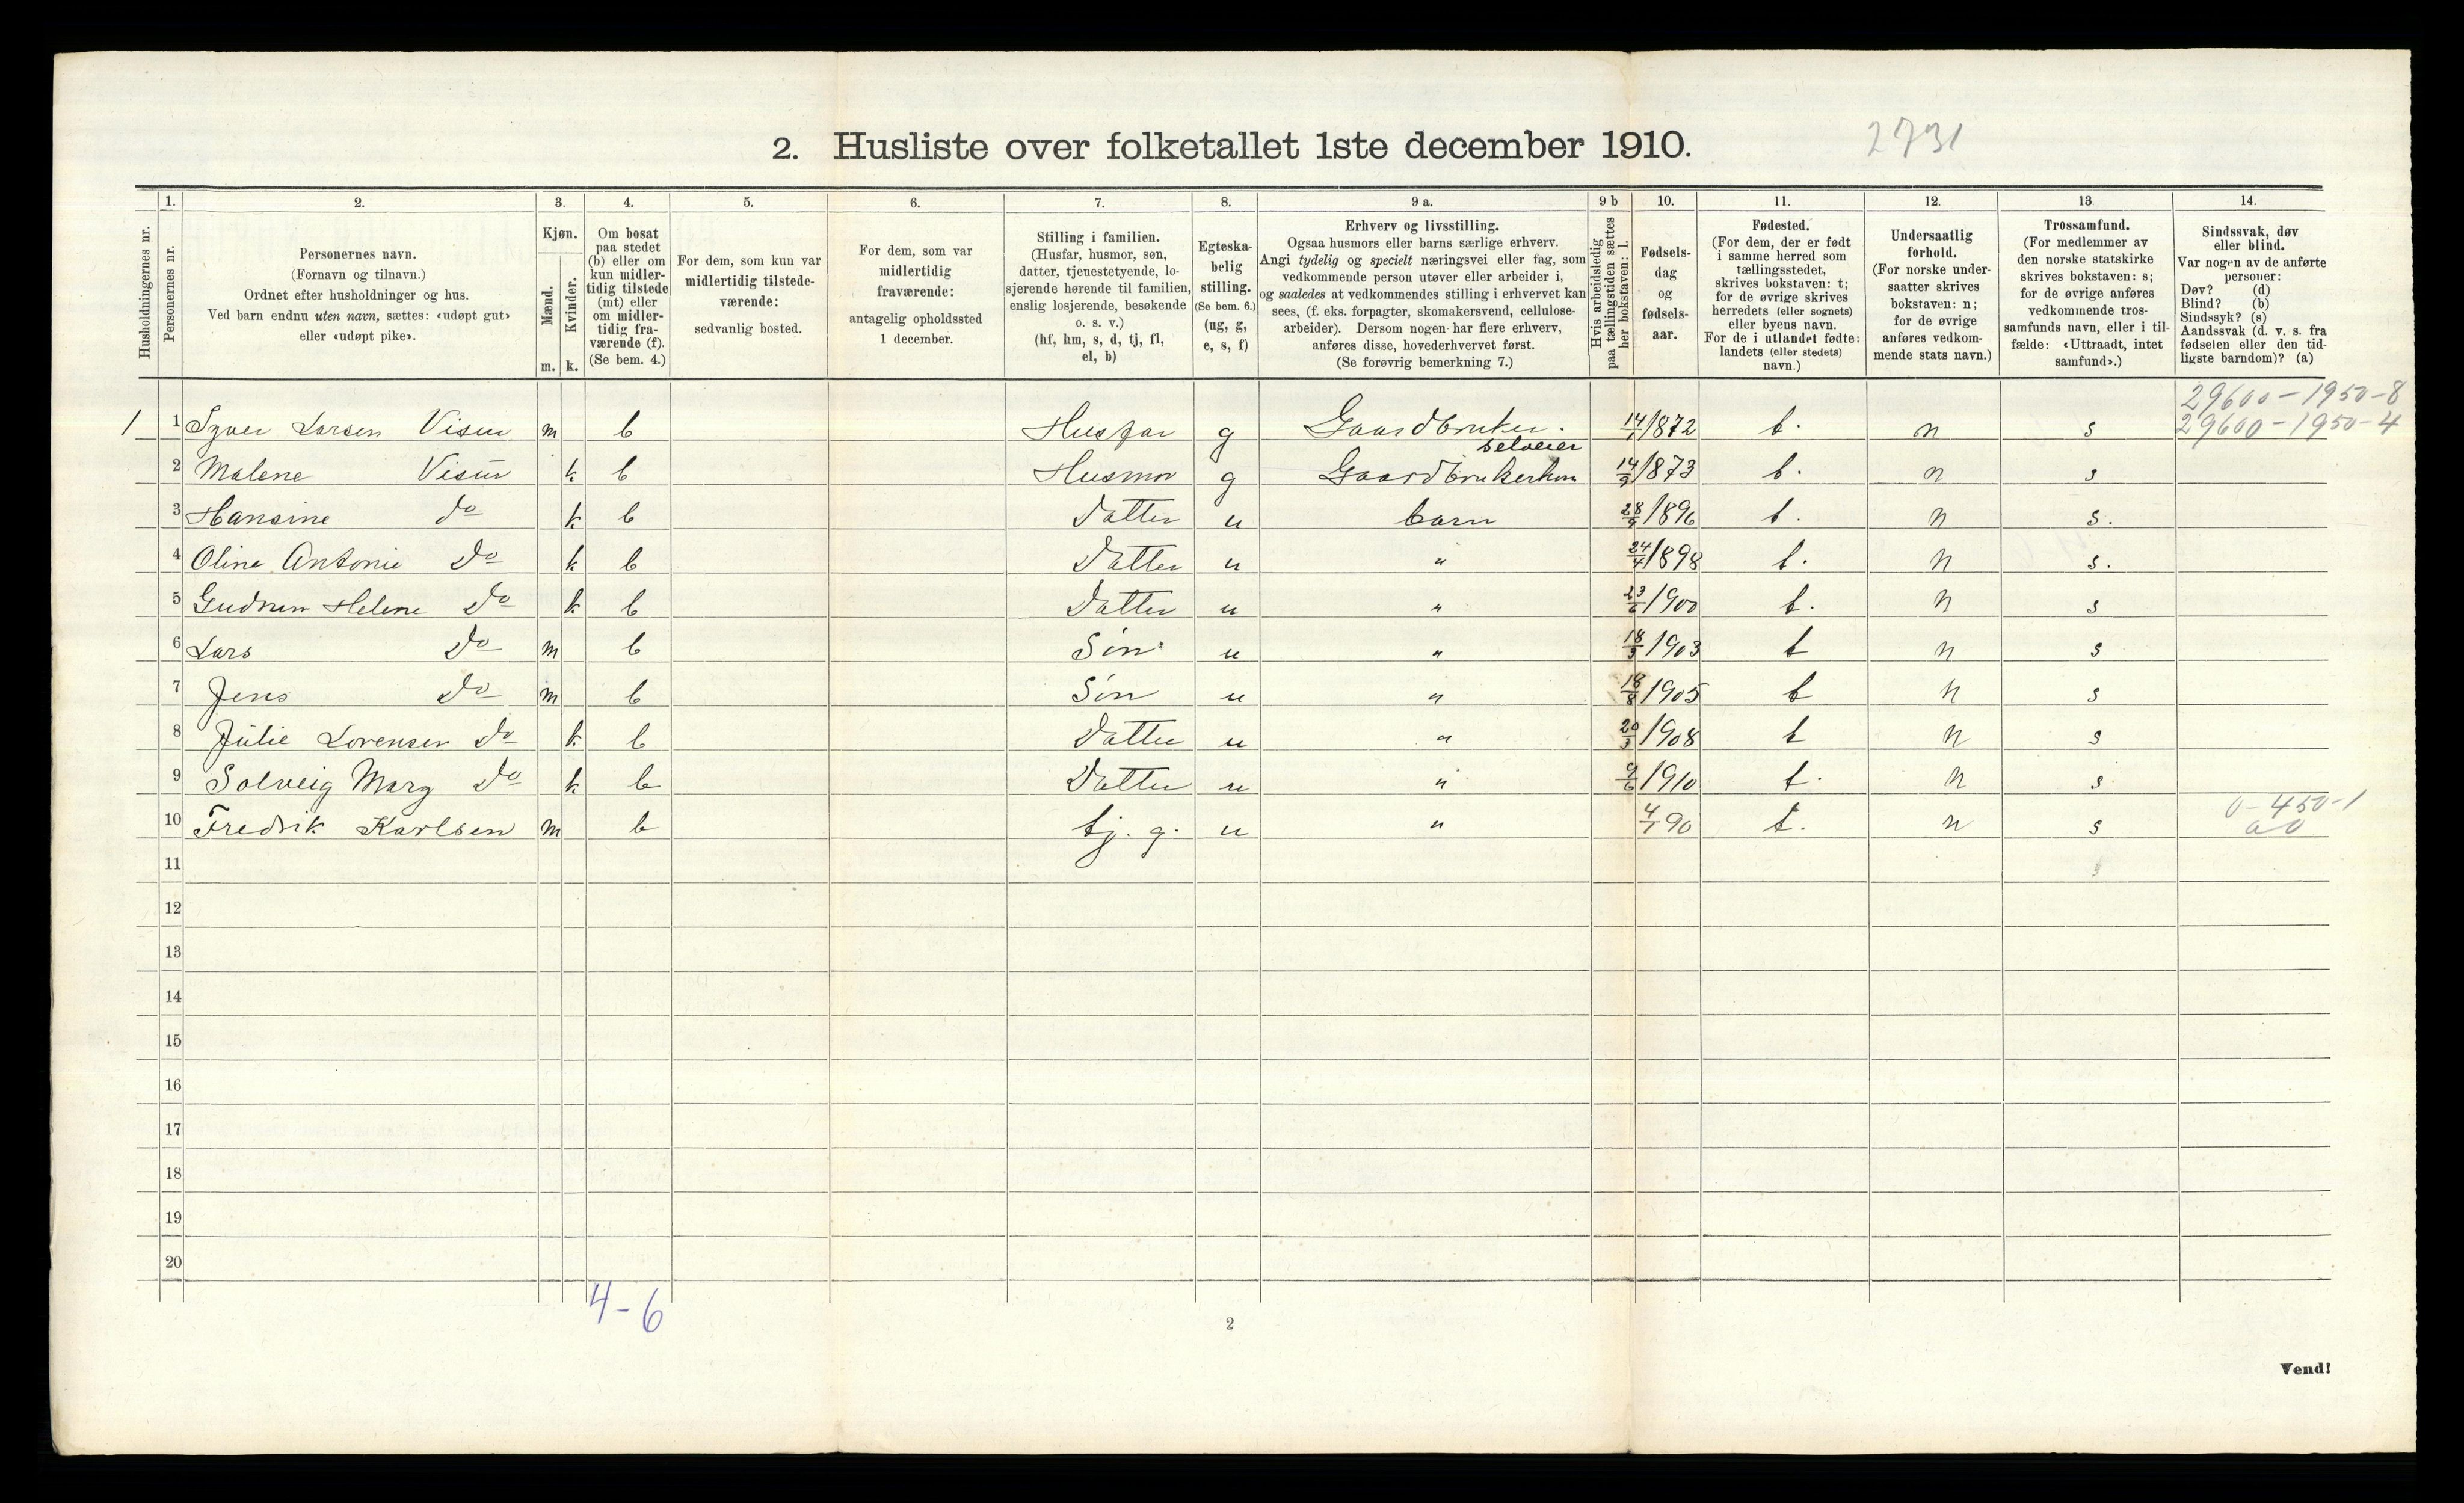 2. Husliste over folketallet 1ste december 1910.
2731
Husholdningernes nr.
1. Personernes nr.
2. Personernes navn. (Fornavn og tilnavn.) Ordnet efter husholdninger og hus. Ved barn endnu uten navn, sættes: «udøpt gut» eller «udøpt pike».
3. Kjøn. Mænd. m. Kvinder. k.
4. Om bosat paa stedet (b) eller om kun midlertidig tilstede (mt) eller om midlertidig fraværende (f). (Se bem. 4.)
5. For dem, som kun var midlertidig tilstedeværende: sedvanlig bosted.
6. For dem, som var midlertidig fraværende: antagelig opholdssted 1 december.
7. Stilling i familien. (Husfar, husmor, søn, datter, tjenestetyende, losjerende hørende til familien, enslig losjerende, besøkende o. s. v.) (hf, hm, s, d, tj, fl, el, b)
8. Egteskabelig stilling. (Se bem. 6.) (ug, g, e, s, f)
9 a. Erhverv og livsstilling. Ogsaa husmors eller barns særlige erhverv. Angi tydelig og specielt næringsvei eller fag, som vedkommende person utøver eller arbeider i, og saaledes at vedkommendes stilling i erhvervet kan sees, (f. eks. forpagter, skomakersvend, cellulosearbeider). Dersom nogen har flere erhverv, anføres disse, hovederhvervet først. (Se forøvrig bemerkning 7.)
9 b Hvis arbeidsledig paa tællingstiden sættes her bokstaven: l.
10. Fødselsdag og fødselsaar.
11. Fødested. (For dem, der er født i samme herred som tællingsstedet, skrives bokstaven: t; for de øvrige skrives herredets (eller sognets) eller byens navn. For de i utlandet fødte: landets (eller stedets) navn.)
12. Undersaatlig forhold. (For norske undersaatter skrives bokstaven: n; for de øvrige anføres vedkommende stats navn.)
13. Trossamfund. (For medlemmer av den norske statskirke skrives bokstaven: s; for de øvrige anføres vedkommende trossamfunds navn, eller i tilfælde: «Uttraadt, intet samfund».)
14. Sindssvak, døv eller blind. Var nogen av de anførte personer: Døv? (d) Blind? (b) Sindssyk? (s) Aandssvak (d. v. s. fra fødselen eller den tidligste barndom)? (a)
29600-1950-8
1 1 Larsen Visur m b Husfar g Gaardbruker. selveier 14/1 1872 t. n s 29600-1950-4
2 Malene Visur k b Husmor g Gaardbrukerkone 14/9 1873 t. n s
3 Hansine do k b Datter u barn 28/9 1896 t. n s.
4 Oline Antonie do k b Datter u " 24/4 1898 t. n s.
5 Gudrun Helene do k b Datter u " 23/6 1900 t. n s
6 Lars do m b Søn u " 18/3 1903 t n s
7 Jens do m b Søn u " 18/8 1905 t n s
8 Julie Lorensen do k b Datter u " 20/3 1908 t n s
9 Solveig Marg do k b Datter u " 9/6 1910 t. n s
0-450-1
10 Fredrik Karlsen m b tj. g. u " 4/1 90 t. n s 00
11
12
13
14
15
16
17
18
19
20
4-6
2
Vend!